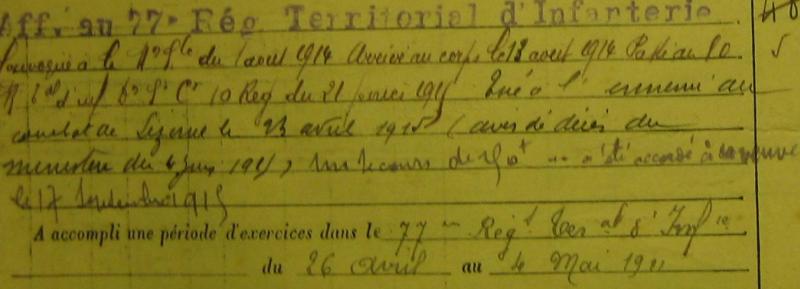 Aff. au 77e Rég. Territorial d'Infanterie
à la Mon Gle du 1 aout 1914 Arrivé au corps le 13 aout 1914 Passé au 80
R. Gal du 21 février 1915 Tué à l'ennemi au
combat de Lizerne le 23 avril 1915 (avis de décès du
ministère du 4 juin 1915) un secours de 150 f a été accordé à sa veuve
le 17 Septembre 1915
A accompli une période d'exercices dans le 77me Régt Teral d'Infie
du 26 Avril au 4 Mai 1911